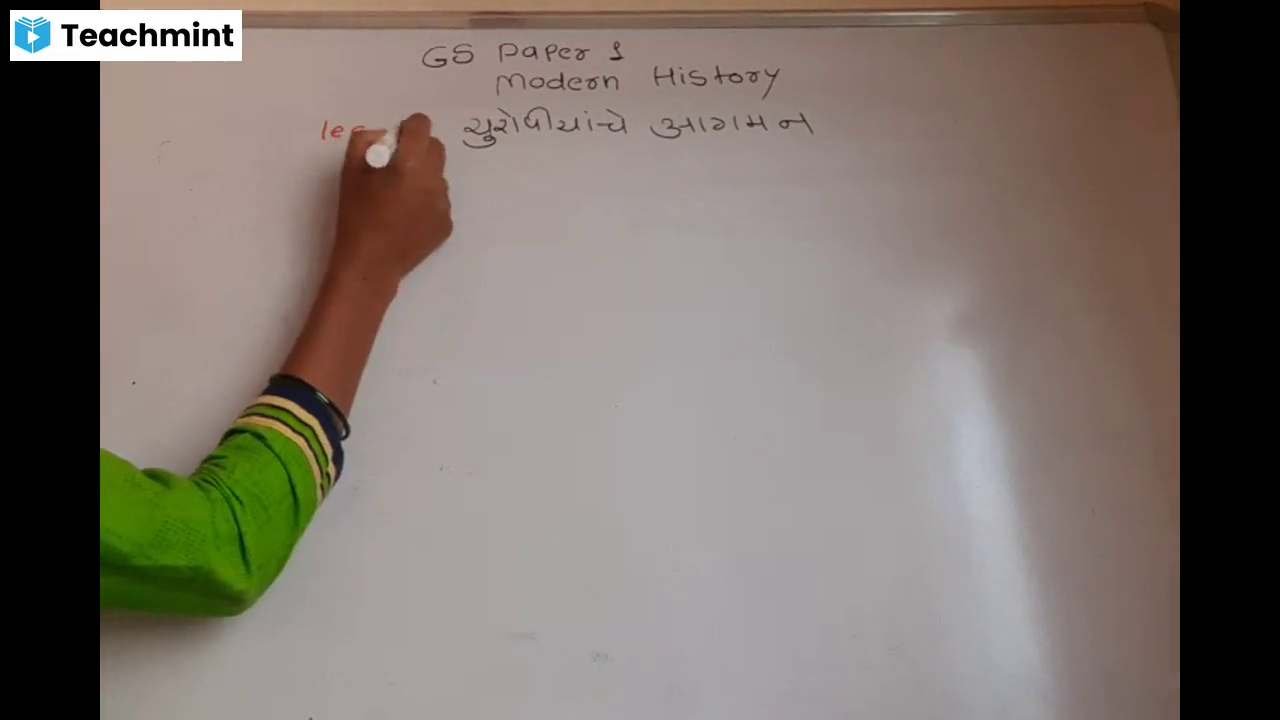 Teachmint
GS Paper 1
Modern History
युरोपीयांचे आगमन